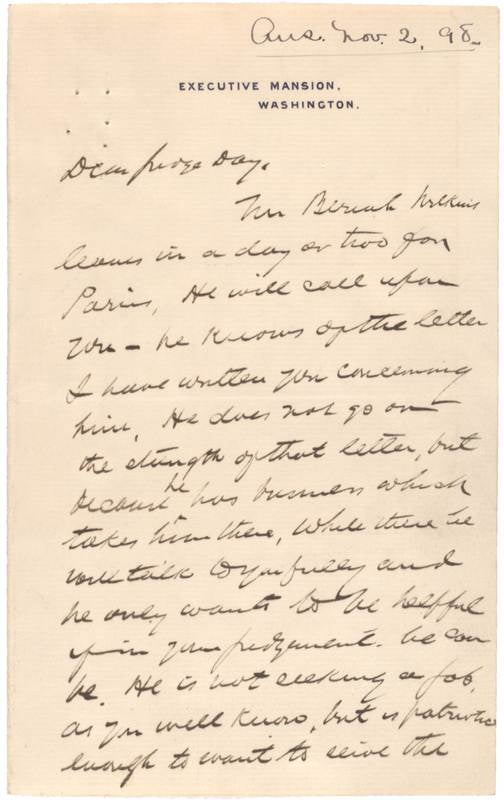 Ans. Nov. 2. 98.
EXECUTIVE MANSION,
WASHINGTON.
Dear Judge Day,
Mr Beriah Wilkins
leaves in a day or two for
Paris, He will call upon
you – he knows of the letter
I have written you concerning
him, He does not go on
the strength of that letter, but
because he has business which
takes him there, While there he
will talk to you fully and
he only wants to be helpful
if in your judgement he can
be. He is not seeking a job,
as you well know, but is patriotic
enough to want to serve the